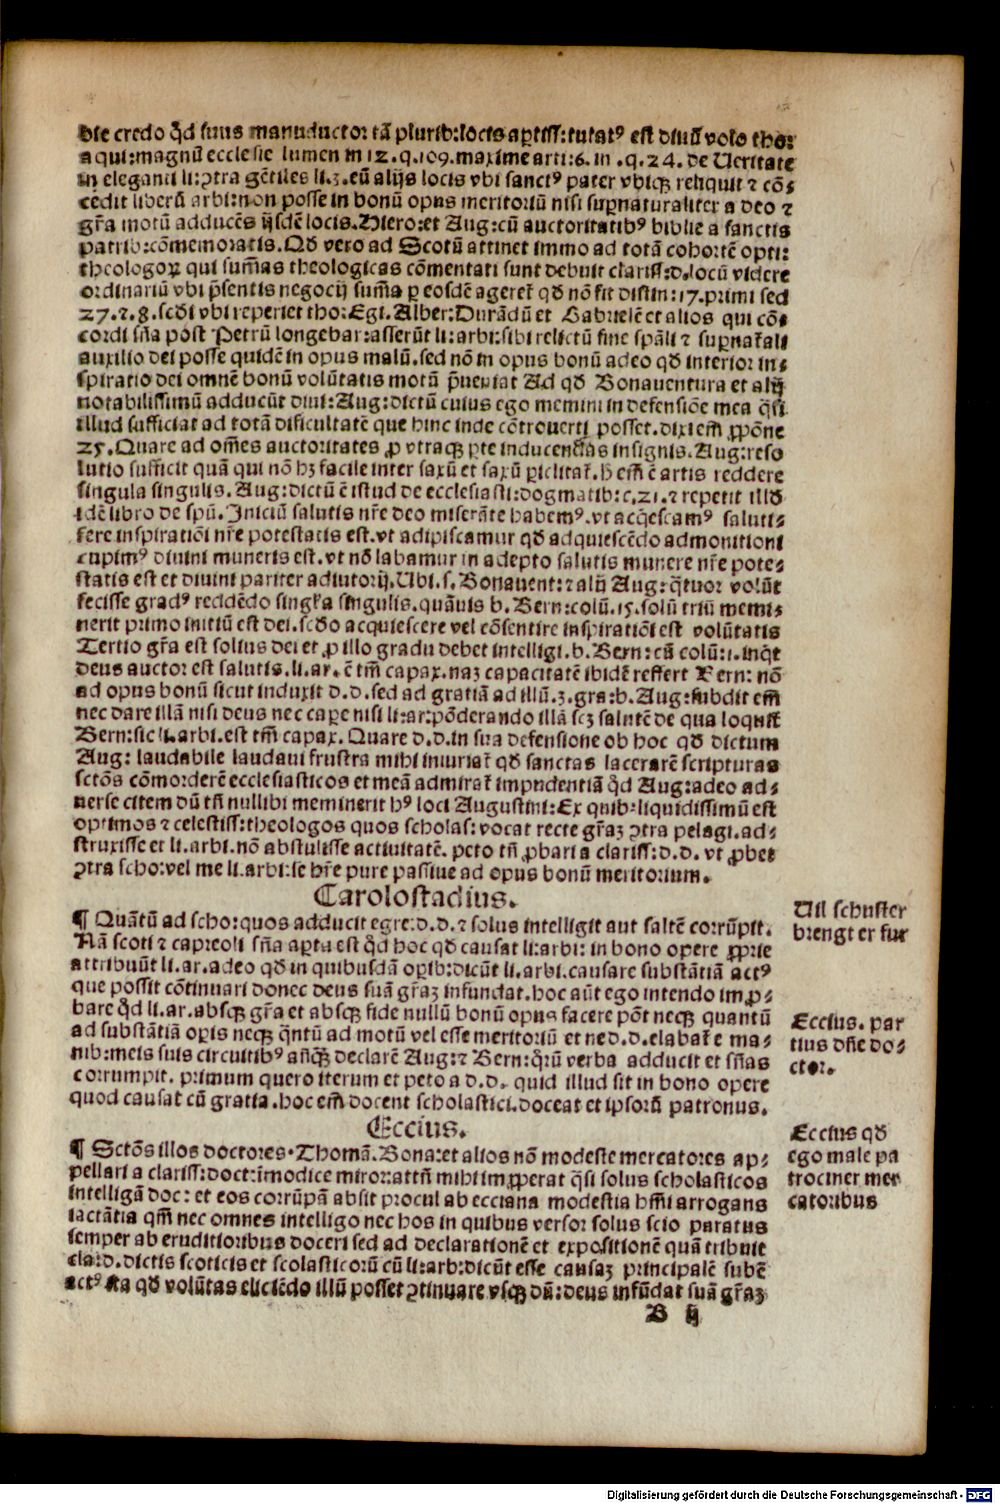 hic credo q̄d suus manuductor tā plurib:locis aptiss:tutatꝰ est diuū volo tho:
aqui:magnū ecclesie lumen in 12.q.109.maxime arti:6.in .q.24.de Ueritate
in eleganti li:ꝯtra gētiles li.3.cū alijs locis vbi sanctꝰ pater vbiqꝫ reliquit ⁊ cō-
cedit liberū arbi:non posse in bonū opus meritoriū nisi supnaturaliter a deo ⁊
gr̄a motū adducēs ijsdē locis.Hiero:et Aug:cū auctoritatibꝰ biblie a sanctis
patrib:cōmemoratis.Qđ vero ad Scotū attinet immo ad totā cohortē opti:
theologoꝝ qui sum̄as theologicas cōmentati sunt debuit clariss:d.locū videre
ordinariū vbi p̄sentis negocij sum̄a ꝑ eosdē ageret̄ qđ nō fit distin:17.primi sed
27.⁊.8.scđi vbi reperiet tho:Egi.Alber:Durādū et Gabrielē et alios qui cō-
cordi sn̄a post Petrū longobar:asserūt li:arbi:sibi relictū sine spāli ⁊ supnat̄ali
auxilio dei posse quidē in opus malū.sed nō in opus bonū adeo qđ interior in-
spiratio dei omnē bonū volūtatis motū p̄ueniat Ad qđ Bonauentura et alij
notabilissimū adducūt diui:Aug:dictū cuius ego memini in defensiōe mea q̄si
illud sufficiat ad totā dificultatē que hinc inde cōtrouerti posset.dixi em̄ ꝓpōne
25.Quare ad om̄es auctoritates ꝓ vtraqꝫ pte inducendas insignis.Aug:reso
lutio sufficit quā qui nō hꝫ facile inter saxū et saxū piclitat̄.h em̄ ē artis reddere
singula singulis.Aug:dictū ē istud de ecclesiasti:dogmatib:c.21.⁊ repetit illđ
idē libro de spū.Iniciū salutis nr̄e deo miserāte habemꝰ.vt acq̄escamꝰ saluti-
fere inspiratiōi nr̄e potestatis est.vt adipiscamur qđ adquiescēdo admonitioni
cupimꝰ diuini muneris est.vt nō labamur in adepto salutis munere nr̄e pote-
statis est et diuini pariter adiutorij.Ubi.s.Bonauent:⁊ alij Aug:q̄tuor volūt
fecisse gradꝰ reddēdo singl̄a singulis.quāuis b.Bern:colū.15.solū triū memi-
nerit primo initiū est dei.scđo acquiescere vel cōsentire inspiratiōi est volūtatis
Tertio gr̄a est solius dei et ꝓ illo gradu debet intelligi.b.Bern:cū colū:1.inq̄t
deus auctor est salutis.li.ar.ē tm̄ capax.naꝫ capacitatē ibidē reffert Bern: nō
ad opus bonū sicut induxit d.d.sed ad gratiā ad illū.3.gra:b.Aug:subdit em̄
nec dare illā nisi deus nec cape nisi li:ar:pōderando illā scꝫ salutē de qua loquit̄
Bern:sic li.arbi.est tm̄ capax. Quare d.d.in sua defensione ob hoc qđ dictum
Aug: laudabile laudaui frustra mihi iniuriat̄ qđ sanctas lacerarē scripturas
sctōs cōmorderē ecclesiasticos et meā admirat̄ impudentiā q̄d Aug:adeo ad-
uerse citem dū tn̄ nullibi meminerit hꝰ loci Augustini:Ex quib:liquidissimū est
optimos ⁊ celestiss:theologos quos scholas:vocat recte gr̄aꝫ ꝯtra pelagi.ad-
struxisse et li.arbi.nō abstulisse actiuitatē. peto tn̄ ꝓbari a clariss:d.d. vt ꝓbet
ꝯtra scho:vel me li.arbi:se hr̄e pure passiue ad opus bonū meritorium.
Carolostadius.
¶ Quātū ad scho:quos adducit egre:d.d.⁊ solus intelligit aut saltē corrūpit.
Nā scoti ⁊ capreoli sn̄a apta est q̄d hoc qđ causat li:arbi: in bono opere ꝓprie
attribuūt li.ar.adeo qđ in quibusdā opib:dicūt li.arbi.causare substātiā actꝰ
que possit cōtinuari donec deus suā gr̄aꝫ infundat.hoc aūt ego intendo imꝓ-
bare q̄d li.ar.absqꝫ gr̄a et absqꝫ fide nullū bonū opus facere pōt neqꝫ quantū
ad substātiā opis neqꝫ q̄ntū ad motū vel esse meritoriū et ne d.d.elabat̄ e ma-
nib:meis suis circuitibꝰ anq̄ꝫ declarē Aug:⁊ Bern:q̄rū verba adducit et sn̄as
corrumpit. primum quero iterum et peto a d.d. quid illud sit in bono opere
quod causat cū gratia.hoc em̄ docent scholastici.doceat et ipsorū patronus.
Eccius.
¶ Sctōs illos doctores.Thomā.Bona:et alios nō modeste mercatores ap-
pellari a clariss:doct:īmodice miror:attn̄ mihi imꝓperat q̄si solus scholasticos
intelligā doc: et eos corrūpā absit procul ab ecciana modestia hm̄i arrogans
iactātia qm̄ nec omnes intelligo nec hos in quibus versor solus scio paratus
semper ab eruditioribus doceri sed ad declarationē et expositionē quā tribuit
cla:d.dictis scoticis et scolasticorū cū li:arb:dicūt esse causaꝫ principalē subē
actꝰ ita qđ volūtas eliciēdo illū posset ꝯtinuare vsqꝫ dū:deus infūdat suā gr̄aꝫ
B ij
Uil schuster
brengt er fur
Eccius. par
tius dn̄e do-
ctor.
Eccius qđ
ego male pa
trociner mer
catoribus
Digitalisierung gefördert durch die Deutsche Forschungsgemeinschaft - DFG